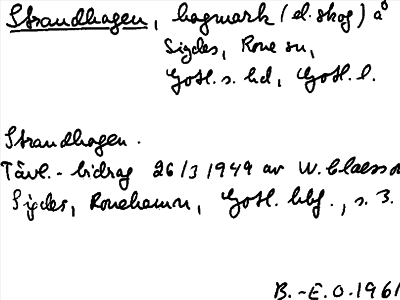 Strandhagen, hagmark (el. skog) å
Sigdes, Rone sn,
Gotl. s. hd, Gotl. l.
Strandhagen.
Tävl.-bidrag 26/3 1949 av W. Claesso
Sigdes, Ronehamn, Gotl. hbf., s. 3.
B.-E. O. 1961